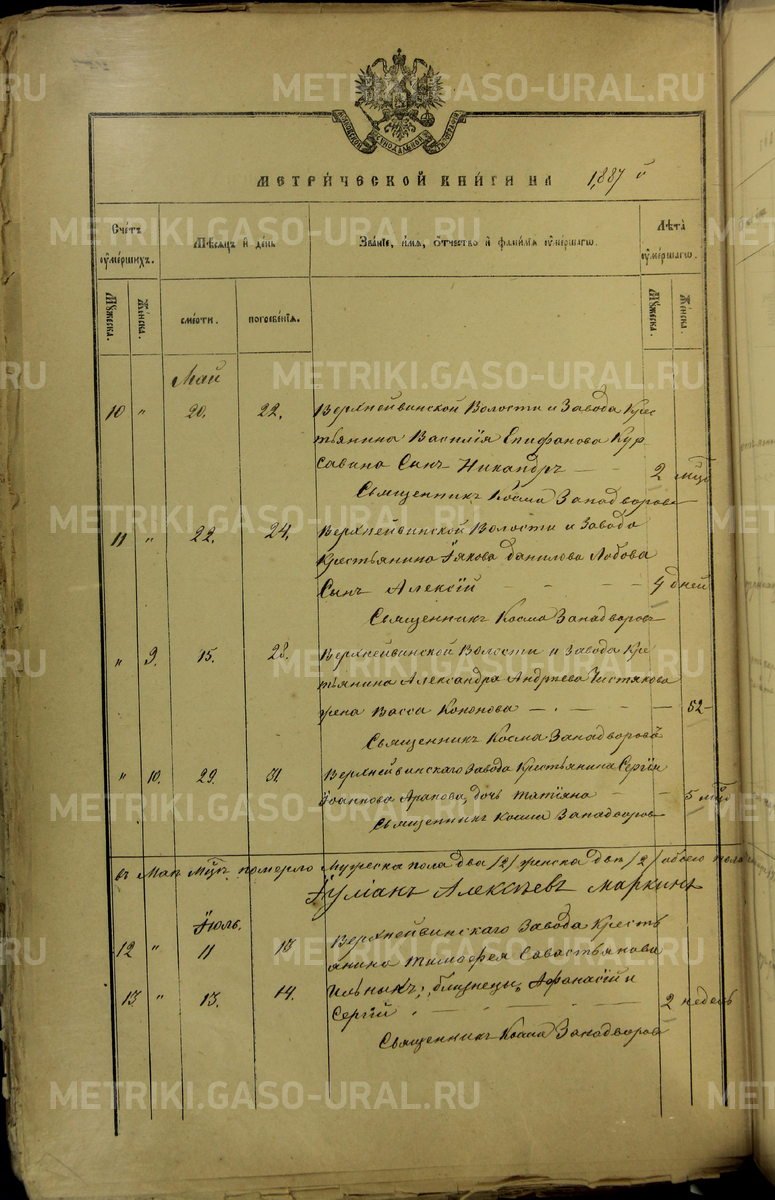 МЕТРИЧЕСКОЙ КНИГИ НА 1887 й
Счетъ умершихъ.
Мѣсяцъ и день
Званіе, имя, отчество и фамилія умершаго.
Лѣта умершаго.
Мужеска.
Женска.
смерти.
погребенія.
Мужеска.
Женска.
Май
10 " 20. 22. Верхнейвинской Волости и Завода Крес
тьянина Василія Епифанова Кур
савина Сынъ Никандръ — — 2 мцъ
Священникъ Косма Западворовъ
11 " 22. 24. Верхнейвинской Волости и Завода
Крестьянина Іякова Данилова Лобова
Сынъ Алексій — — — 4 дней
Священникъ Косма Западворовъ
" 9. 15. 28. Верхнейвинской Волости и Завода Кре
тьянина Александра Андреева Чистякова
жена Васса Кононова — — — 52 -
Священникъ Косма Западворовъ
" 10. 29. 31. Верхнейвинскаго Завода Крестьянина Сергія
Іоаннова Арапова, дочь Татіяна — — 5 мцъ
Священникъ Косма Западворовъ
въ Маѣ Мцѣ померло Мужеска пола два /2/ женска двѣ /2/ обоего пола
Алексѣевъ Маркинъ
Іюль.
12 " 11 13 Верхнейвинскаго Завода Кресть
янина Тимофея Савастьянова
13. " 13. 14. близнецы, Афанасій и
Сергій — — — 2 недель
Священникъ Косма Западворовъ
METRIKI.GASO-URAL.RU